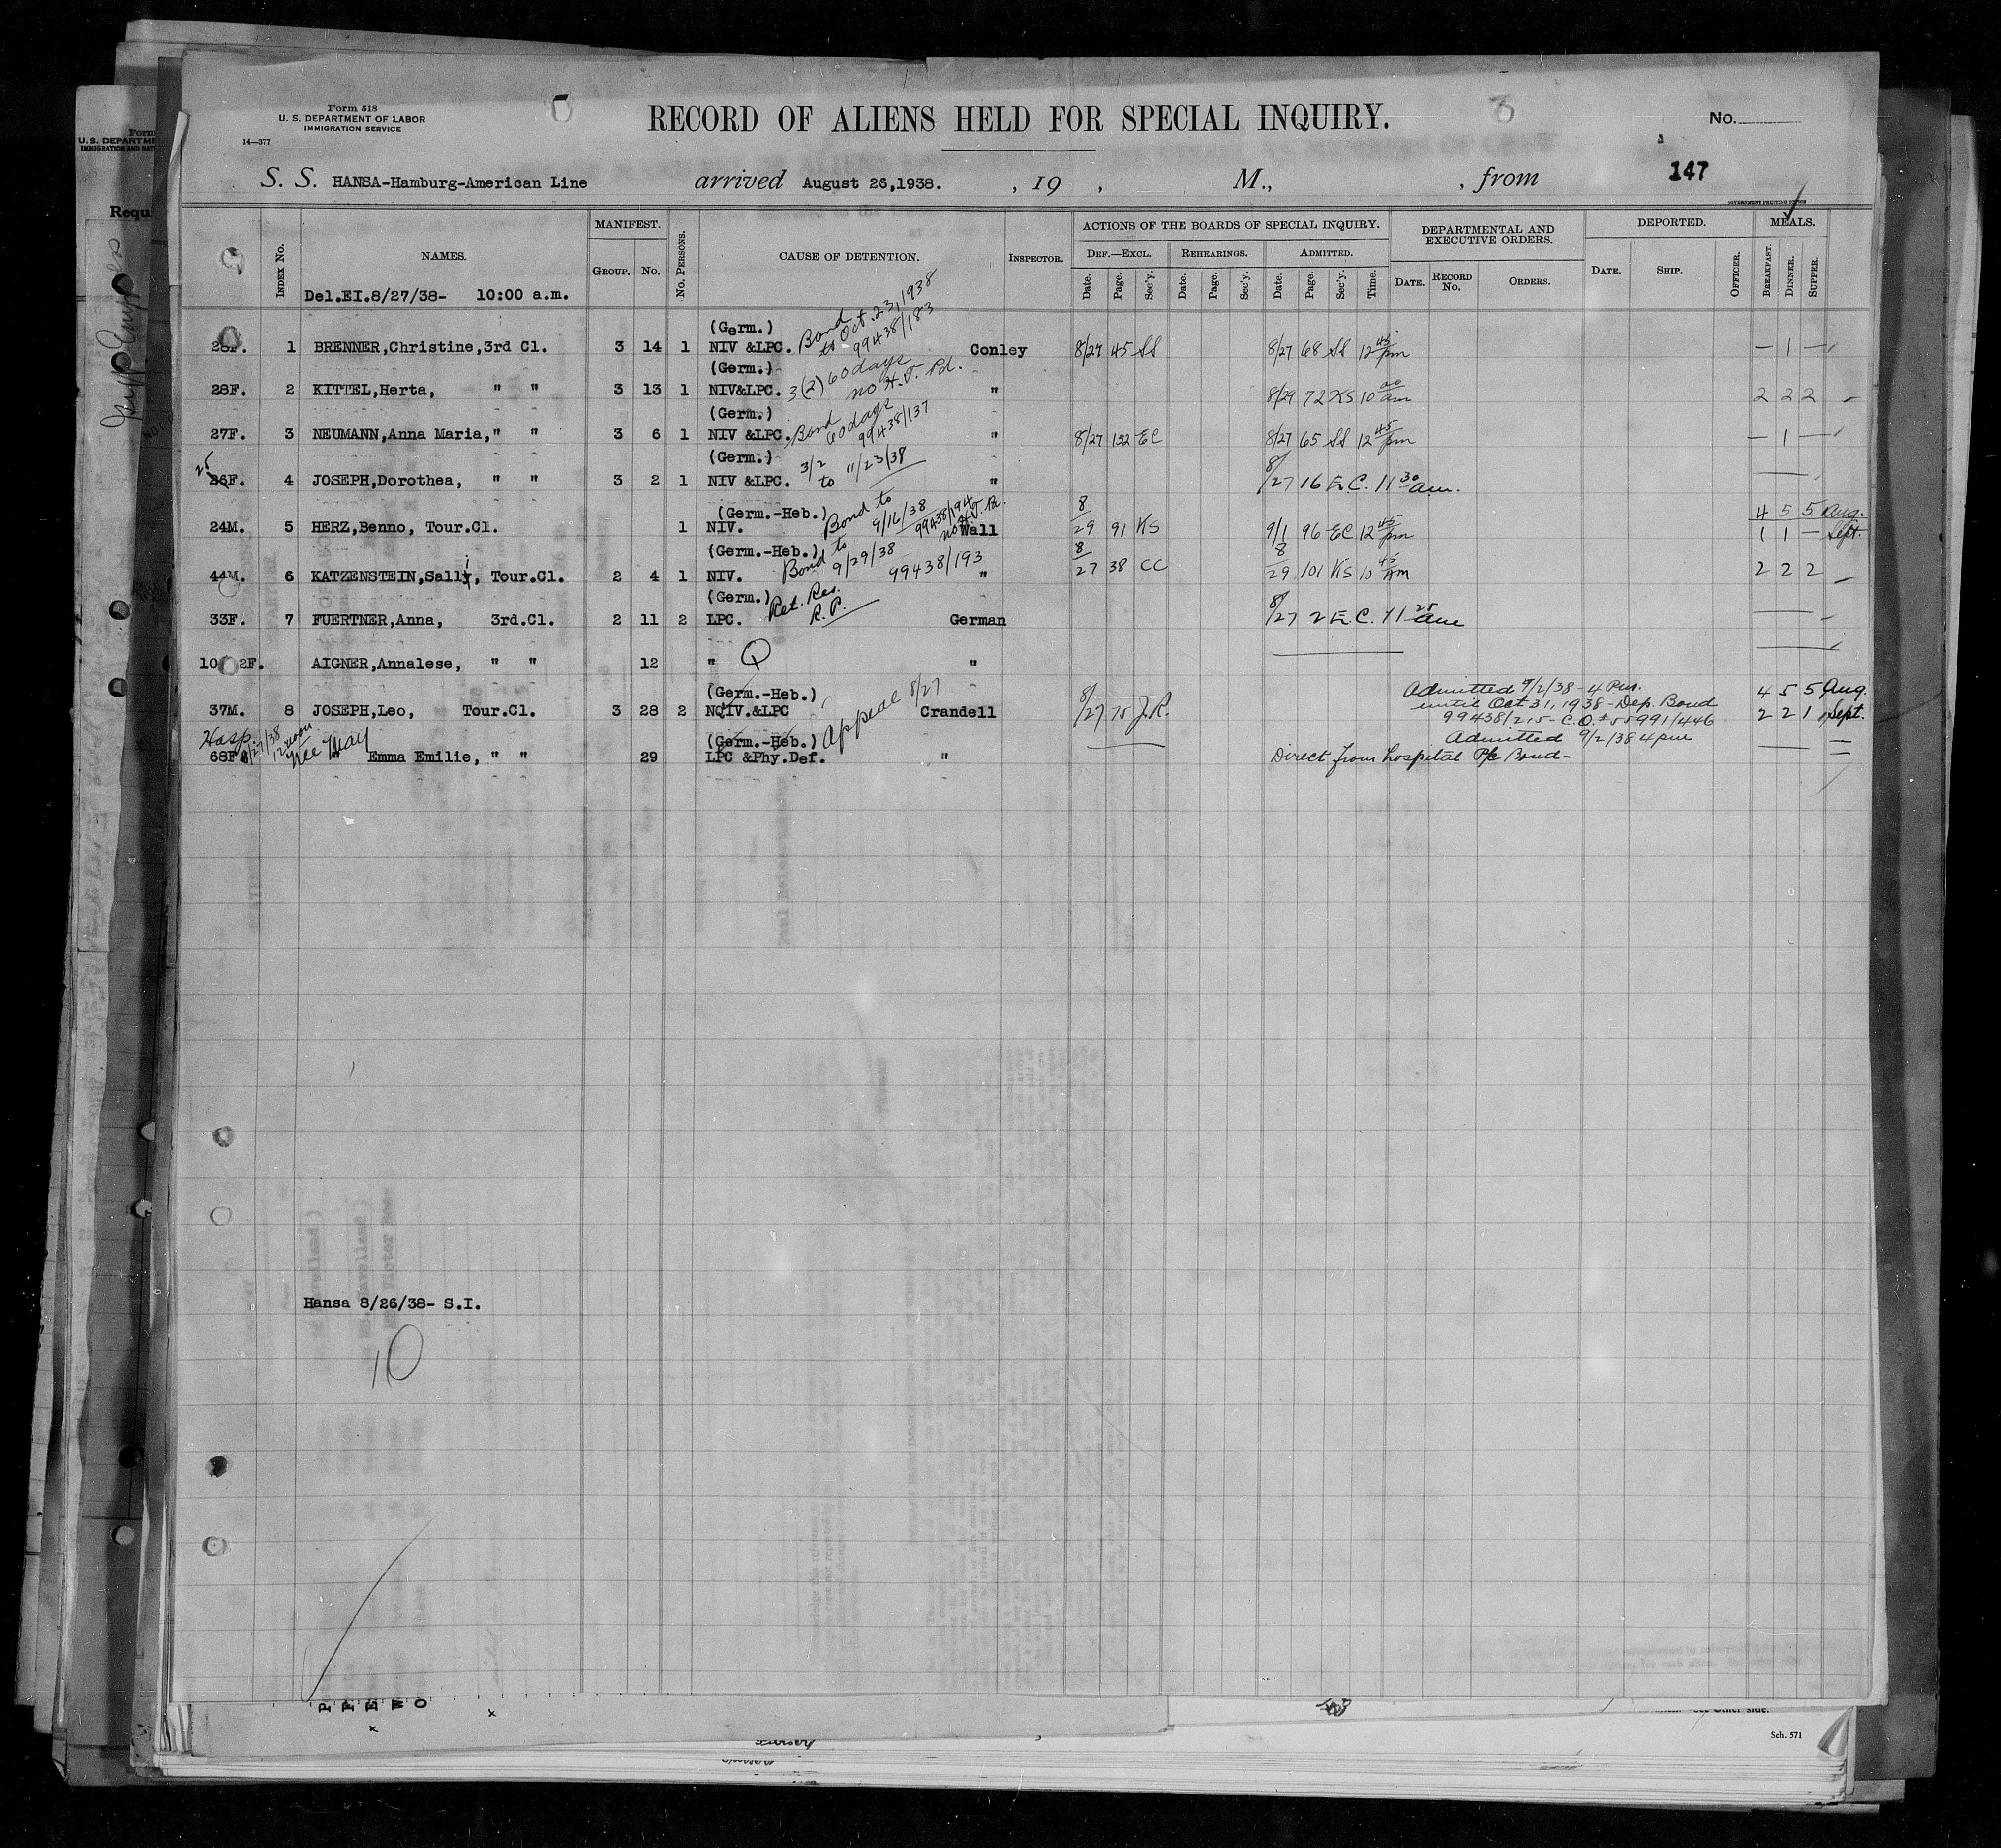 Form 518
U. S. DEPARTMENT OF LABOR
IMMIGRATION SERVICE
14—377
RECORD OF ALIENS HELD FOR SPECIAL INQUIRY.
No.
147
S. S. HANSA-Hamburg-American Line arrived August 26,1938. , 19 , M., , from
GOVERNMENT PRINTING OFFICE
INDEX No. NAMES. MANIFEST. GROUP. No. No. PERSONS. CAUSE OF DETENTION. INSPECTOR. ACTIONS OF THE BOARDS OF SPECIAL INQUIRY. DEPARTMENTAL AND EXECUTIVE ORDERS. DEPORTED. MEALS.
DEF.—EXCL. REHEARINGS. ADMITTED.
Date. Page. Sec'y. Date. Page. Sec'y. Date. Page. Sec'y. Time. DATE. RECORD No. ORDERS. DATE. SHIP. OFFICER. BREAKFAST. DINNER. SUPPER.
Del.EI.8/27/38- 10:00 a.m.
(Germ.) Bond to Oct. 23, 1938
28F. 1 BRENNER,Christine,3rd Cl. 3 14 1 NIV &LPC. 99438/183 Conley 8/27 45 SS 8/27 68 SS 12 45 pm — 1 —
(Germ.)
28F. 2 KITTEL,Herta, " " 3 13 1 NIV&LPC. 3(2) 60 days no H.T. Pd. " 8/29 72 KS 10 00 am 2 2 2 —
(Germ.)
27F. 3 NEUMANN,Anna Maria," " 3 6 1 NIV &LPC. Bond 60 days 99438/137 " 8/27 132 EC 8/27 65 SS 12 45 pm — 1 —
(Germ.)
25 26F. 4 JOSEPH,Dorothea, " " 3 2 1 NIV &LPC. 3/2 to 11/23/38 " 8/27 16 E.C. 11 30 am.
(Germ.-Heb.) Bond to 9/16/38 99438/194 4 5 5 Aug.
24M. 5 HERZ,Benno, Tour.Cl. 1 NIV. Wall 8/29 91 KS 9/1 96 EC 12 45 pm 1 1 — Sept.
(Germ.-Heb.) Bond to 9/29/38
44M. 6 KATZENSTEIN,Salli, Tour.Cl. 2 4 1 NIV. 99438/193 " 8/27 38 CC 8/29 101 KS 10 45 am 2 2 2 —
(Germ.) Ret. Res.
33F. 7 FUERTNER,Anna, 3rd.Cl. 2 11 2 LPC. R.P. German 8/27 2 E.C. 11 25 am
10 2F. AIGNER,Annalese, " " 12 " Q "
(Germ.-Heb.) Appeal 8/27 Admitted 9/2/38 - 4 Pm. 4 5 5 Aug.
37M. 8 JOSEPH,Leo, Tour.Cl. 3 28 2 NQIV.&LPC Crandell 8/27 75 J.R. until Oct 31, 1938 - Dep. Bond 2 2 1 Sept.
99438/215 - C.O. # 55991/446
Hosp. 8/27/38 12 noon
(Germ.-Heb.) Admitted 9/2/38 4 pm
68F. nee May Emma Emilie, " " 29 LPC &Phy.Def. " Direct from hospital P/c Bond -
Hansa 8/26/38- S.I.
10
Sch. 571